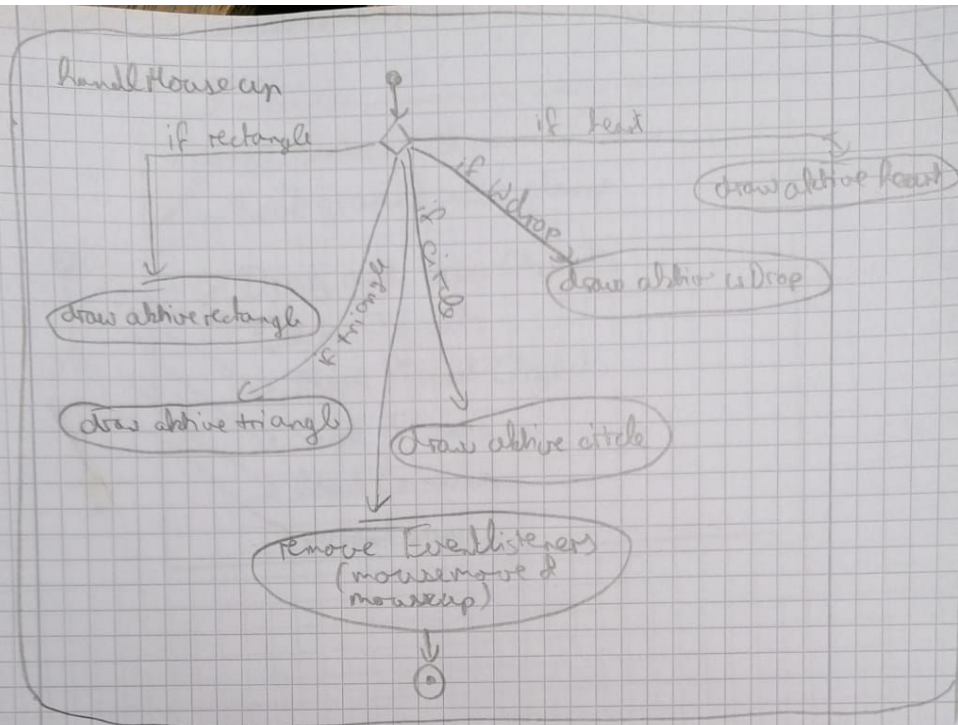 handlMouseup
if rectangle
if heart
draw aktive heart
if wdrop
draw aktive wDrop
if circle
if triangle
draw aktive rectangle
draw aktive triangle
draw aktive circle
remove Eventlisteners
(mousemove &
mouseup)